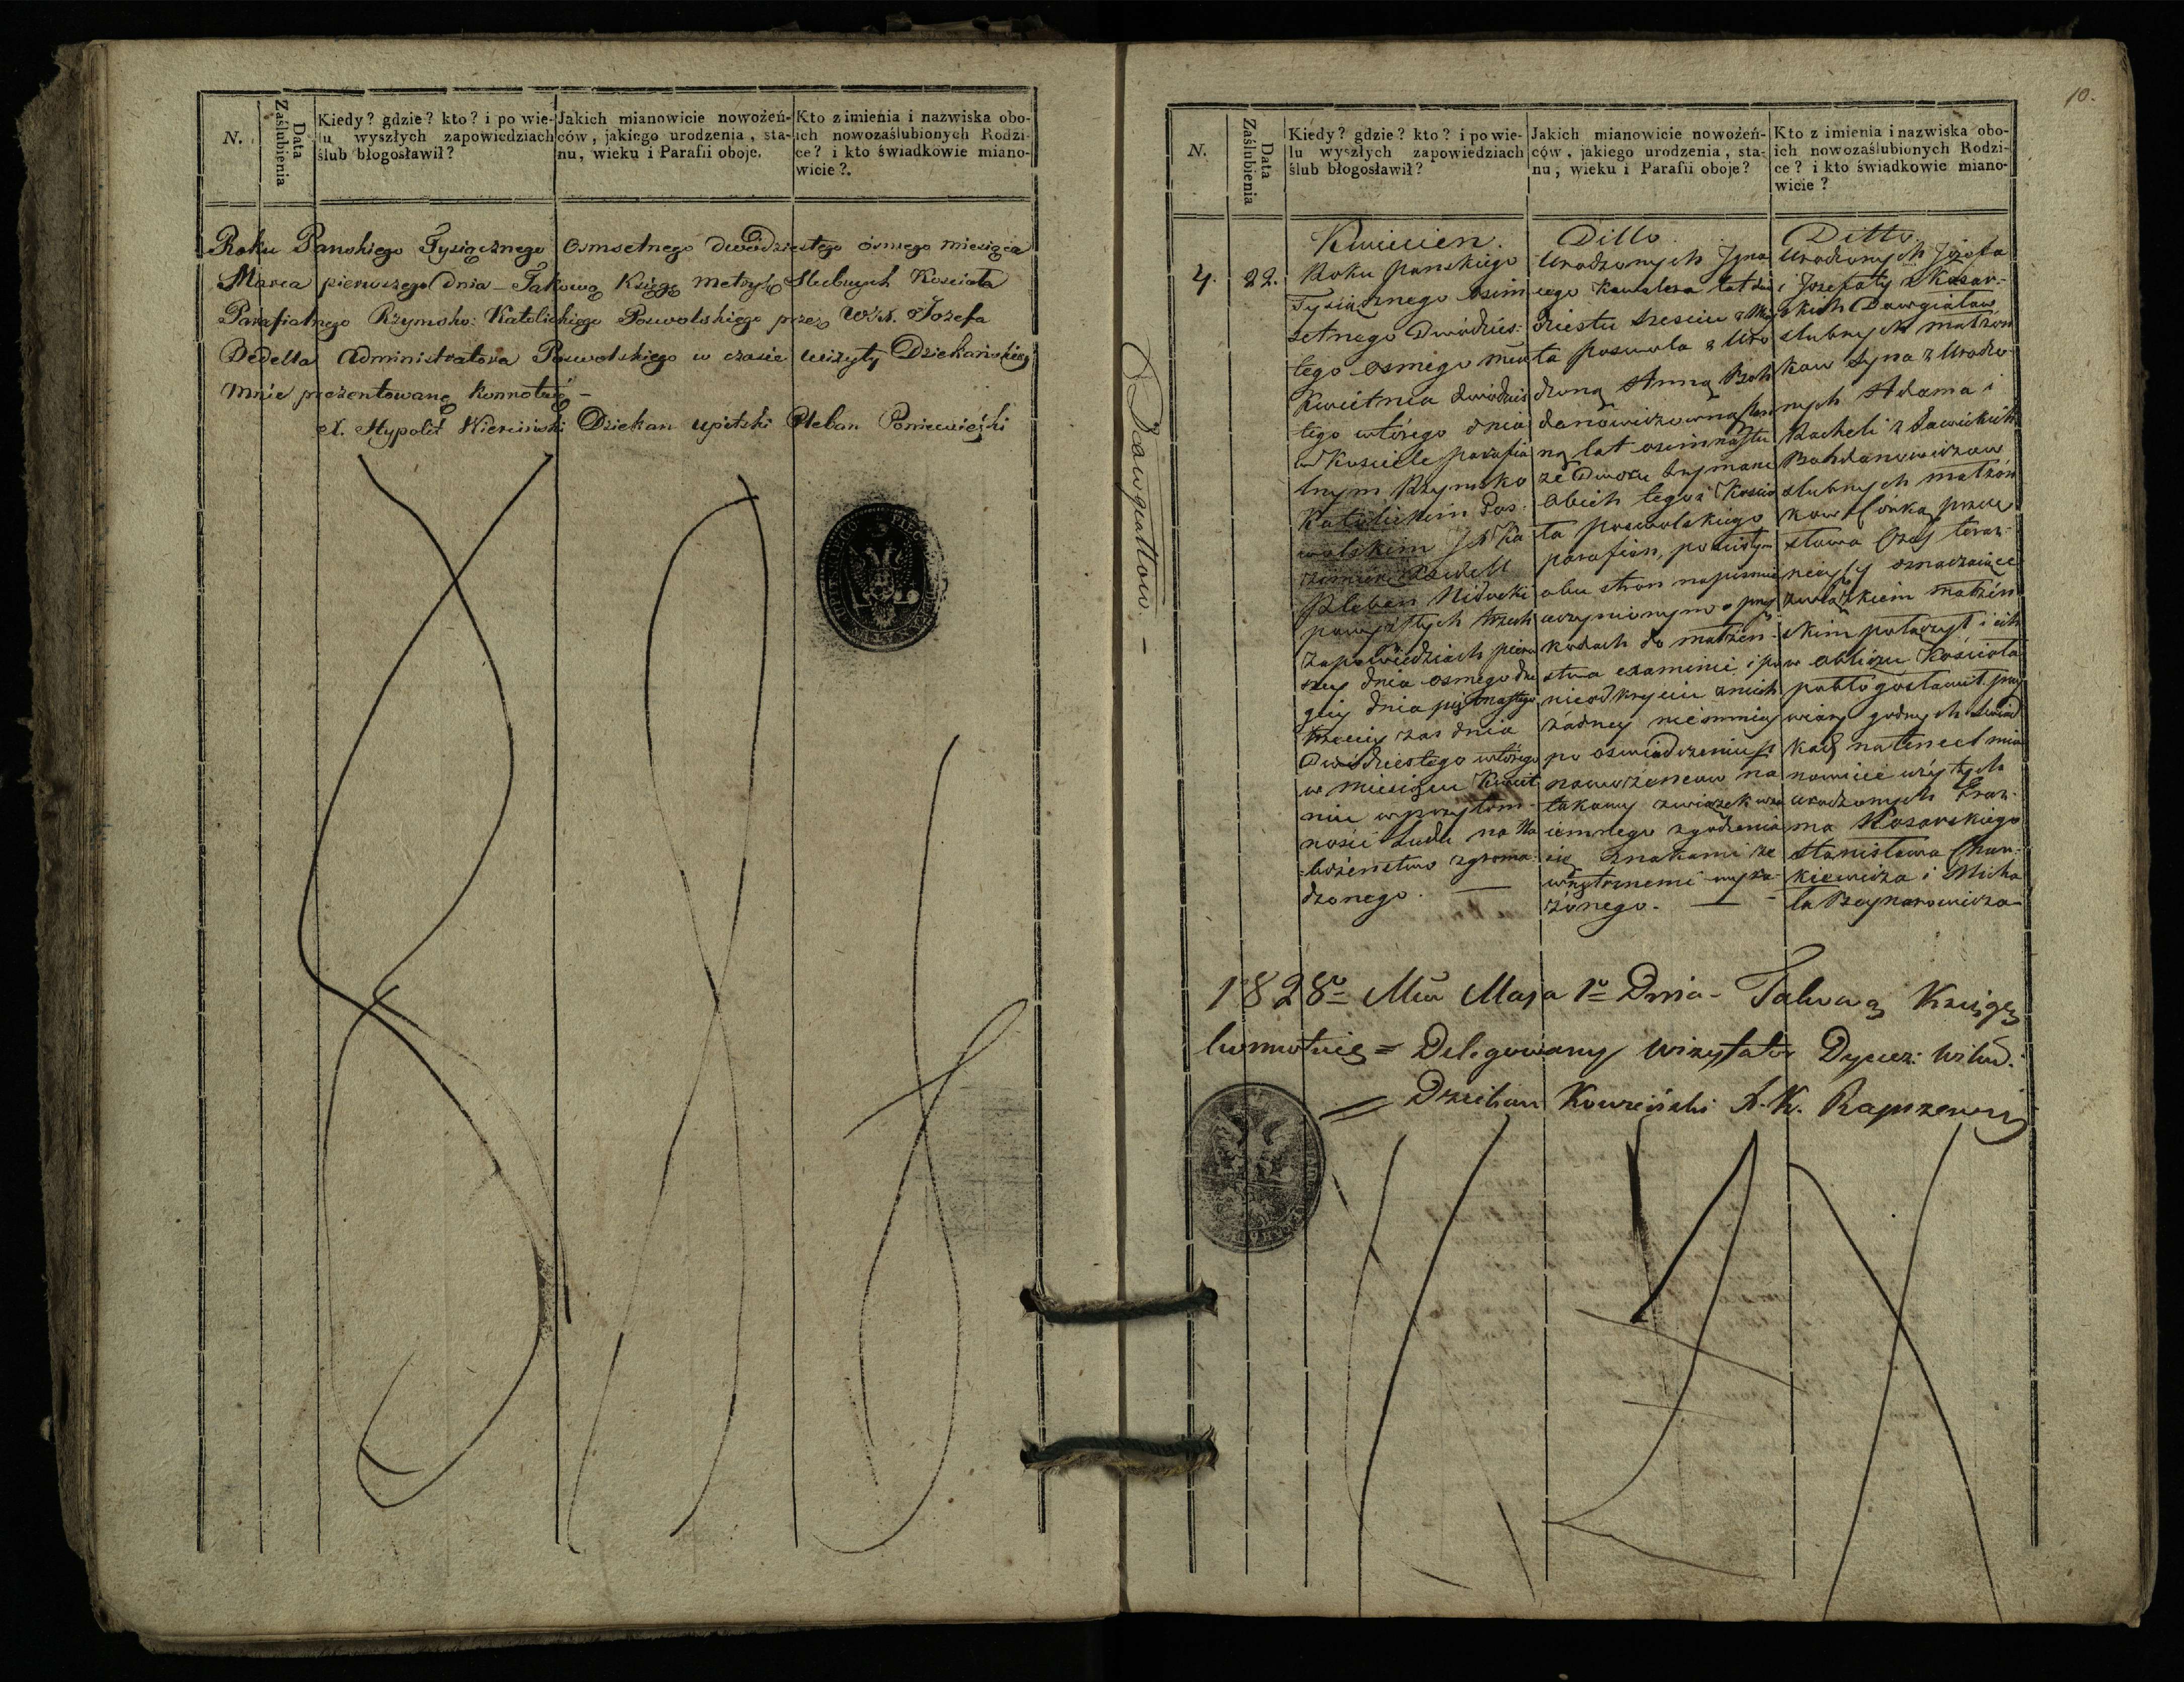 N.
Data Zaślubienia
Kiedy? gdzie? kto? i po wie-
lu wyszłych zapowiedziach
ślub błogosławił?
Jakich mianowicie nowożeń-
ców, jakiego urodzenia, sta-
nu, wieku i Parafii oboje.
Kto z imienia i nazwiska obo-
ich nowozaślubionych Rodzi-
ce? i kto świadkowie miano-
wicie?.
Roku Panskiego Tysiącznego Osmsetnego dwódziestego ósmego miesiąca
Marca pierwszego dnia - Takową Księgę Metryk Slubnych Kosciola
Parafialnego Rzymsko: Katolickiego Poswolskiego przez WJX. Jozefa
Bedella Administratora Poswolskiego w czasie wizyty Dziekańskiey
mnie prezentowaną konnotuię -
X. Hypolit Dziekan Upitski Pleban Poniewiezki
Dawgiałłow. -
10.
N.
Data Zaślubienia
Kiedy? gdzie? kto? i po wie-
lu wyszłych zapowiedziach
ślub błogosławił?
Jakich mianowicie nowożeń-
ców, jakiego urodzenia, sta-
nu, wieku i Parafii oboje?
Kto z imienia i nazwiska obo-
ich nowozaślubionych Rodzi-
ce? i kto świadkowie miano-
wicie?
4.
22.
Kwiecien.
Roku panskiego
Tysiącznego osim
setnego Dwódzies:
tego osmego mca
Kwietnia dwódzies
tego wtórego dnia
w Kosciele parafia
lnym Rzymsko
Katolickim Pos:
wolskim JX Ka
zimierz
Pleban
powyszłych trzech
zapowiedziach pierw
szey dnia osmego dru
giey dnia piętnastego
trzeciey zas dnia
Dwódziestego wtórego
w miesiącu Kwiet
niu w przytom-
nosci Ludu na Na
bożenstwo zgroma-
dzonego. —
Ditto
Urodzonych Igna
cego Kawalera lat dwó
dziestu szesciu z Mia
sta poswola z Uro
dzoną Anną Boh
danowiczowną Pan
ną lat osimnastu
ze Dworu
Obich tegoż Koscio
ła poswolskiego
parafian, po
obu stron napismie
uczynionym o przesz
kodach do małżen-
stwa examinie i po
nieodkryciu zních
żadney niemniey
po oswiadczeniu
nowożencow na
takowy związek wza
iemnego zgodzenia
się znakami ze
wnętrznemi wyra-
żonego. —
Ditto.
Urodzonych Józefa
i Jozefaty z Kosar-
skich Dawgiałow
slubnych małżon
kow Syna z Urodzo
nych Adama i
Racheli z Sawickich
Bohdanowiczow
slubnych małżon
kow Córką przez
słowa Czas teraz-
nieyszy oznaczaiące
związkiem małżen
skim połączył i ich
w obliczu Kościoła
pobłogosławił przy
wiary godnych swiad
kach natenect mia
nowicie użytych
urodzonych Eraz-
ma Kosarskiego
Stanisława
i Micha
ła Boynarowicza
1828o Mca Maja 1o Dnia - Takową Księgę
konnotuię = Delegowany Wizytator Dyecez: Wilen.
= Dziekan Kowieński